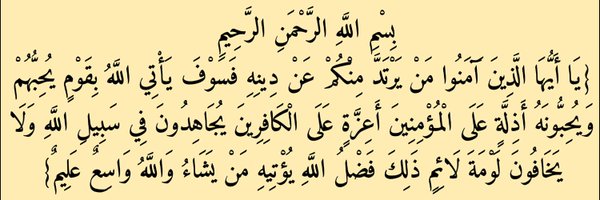 بِسْمِ اللَّهِ الرَّحْمَنِ الرَّحِيمِ
{يَا أَيُّهَا الَّذِينَ آَمَنُوا مَنْ يَرْتَدَّ مِنْكُمْ عَنْ دِينِهِ فَسَوْفَ يَأْتِي اللَّهُ بِقَوْمٍ يُحِبُّهُمْ
وَيُحِبُّونَهُ أَذِلَّةٍ عَلَى الْمُؤْمِنِينَ أَعِزَّةٍ عَلَى الْكَافِرِينَ يُجَاهِدُونَ فِي سَبِيلِ اللَّهِ وَلَا
يَخَافُونَ لَوْمَةَ لَائِمٍ ذَلِكَ فَضْلُ اللَّهِ يُؤْتِيهِ مَنْ يَشَاءُ وَاللَّهُ وَاسِعٌ عَلِيمٌ}